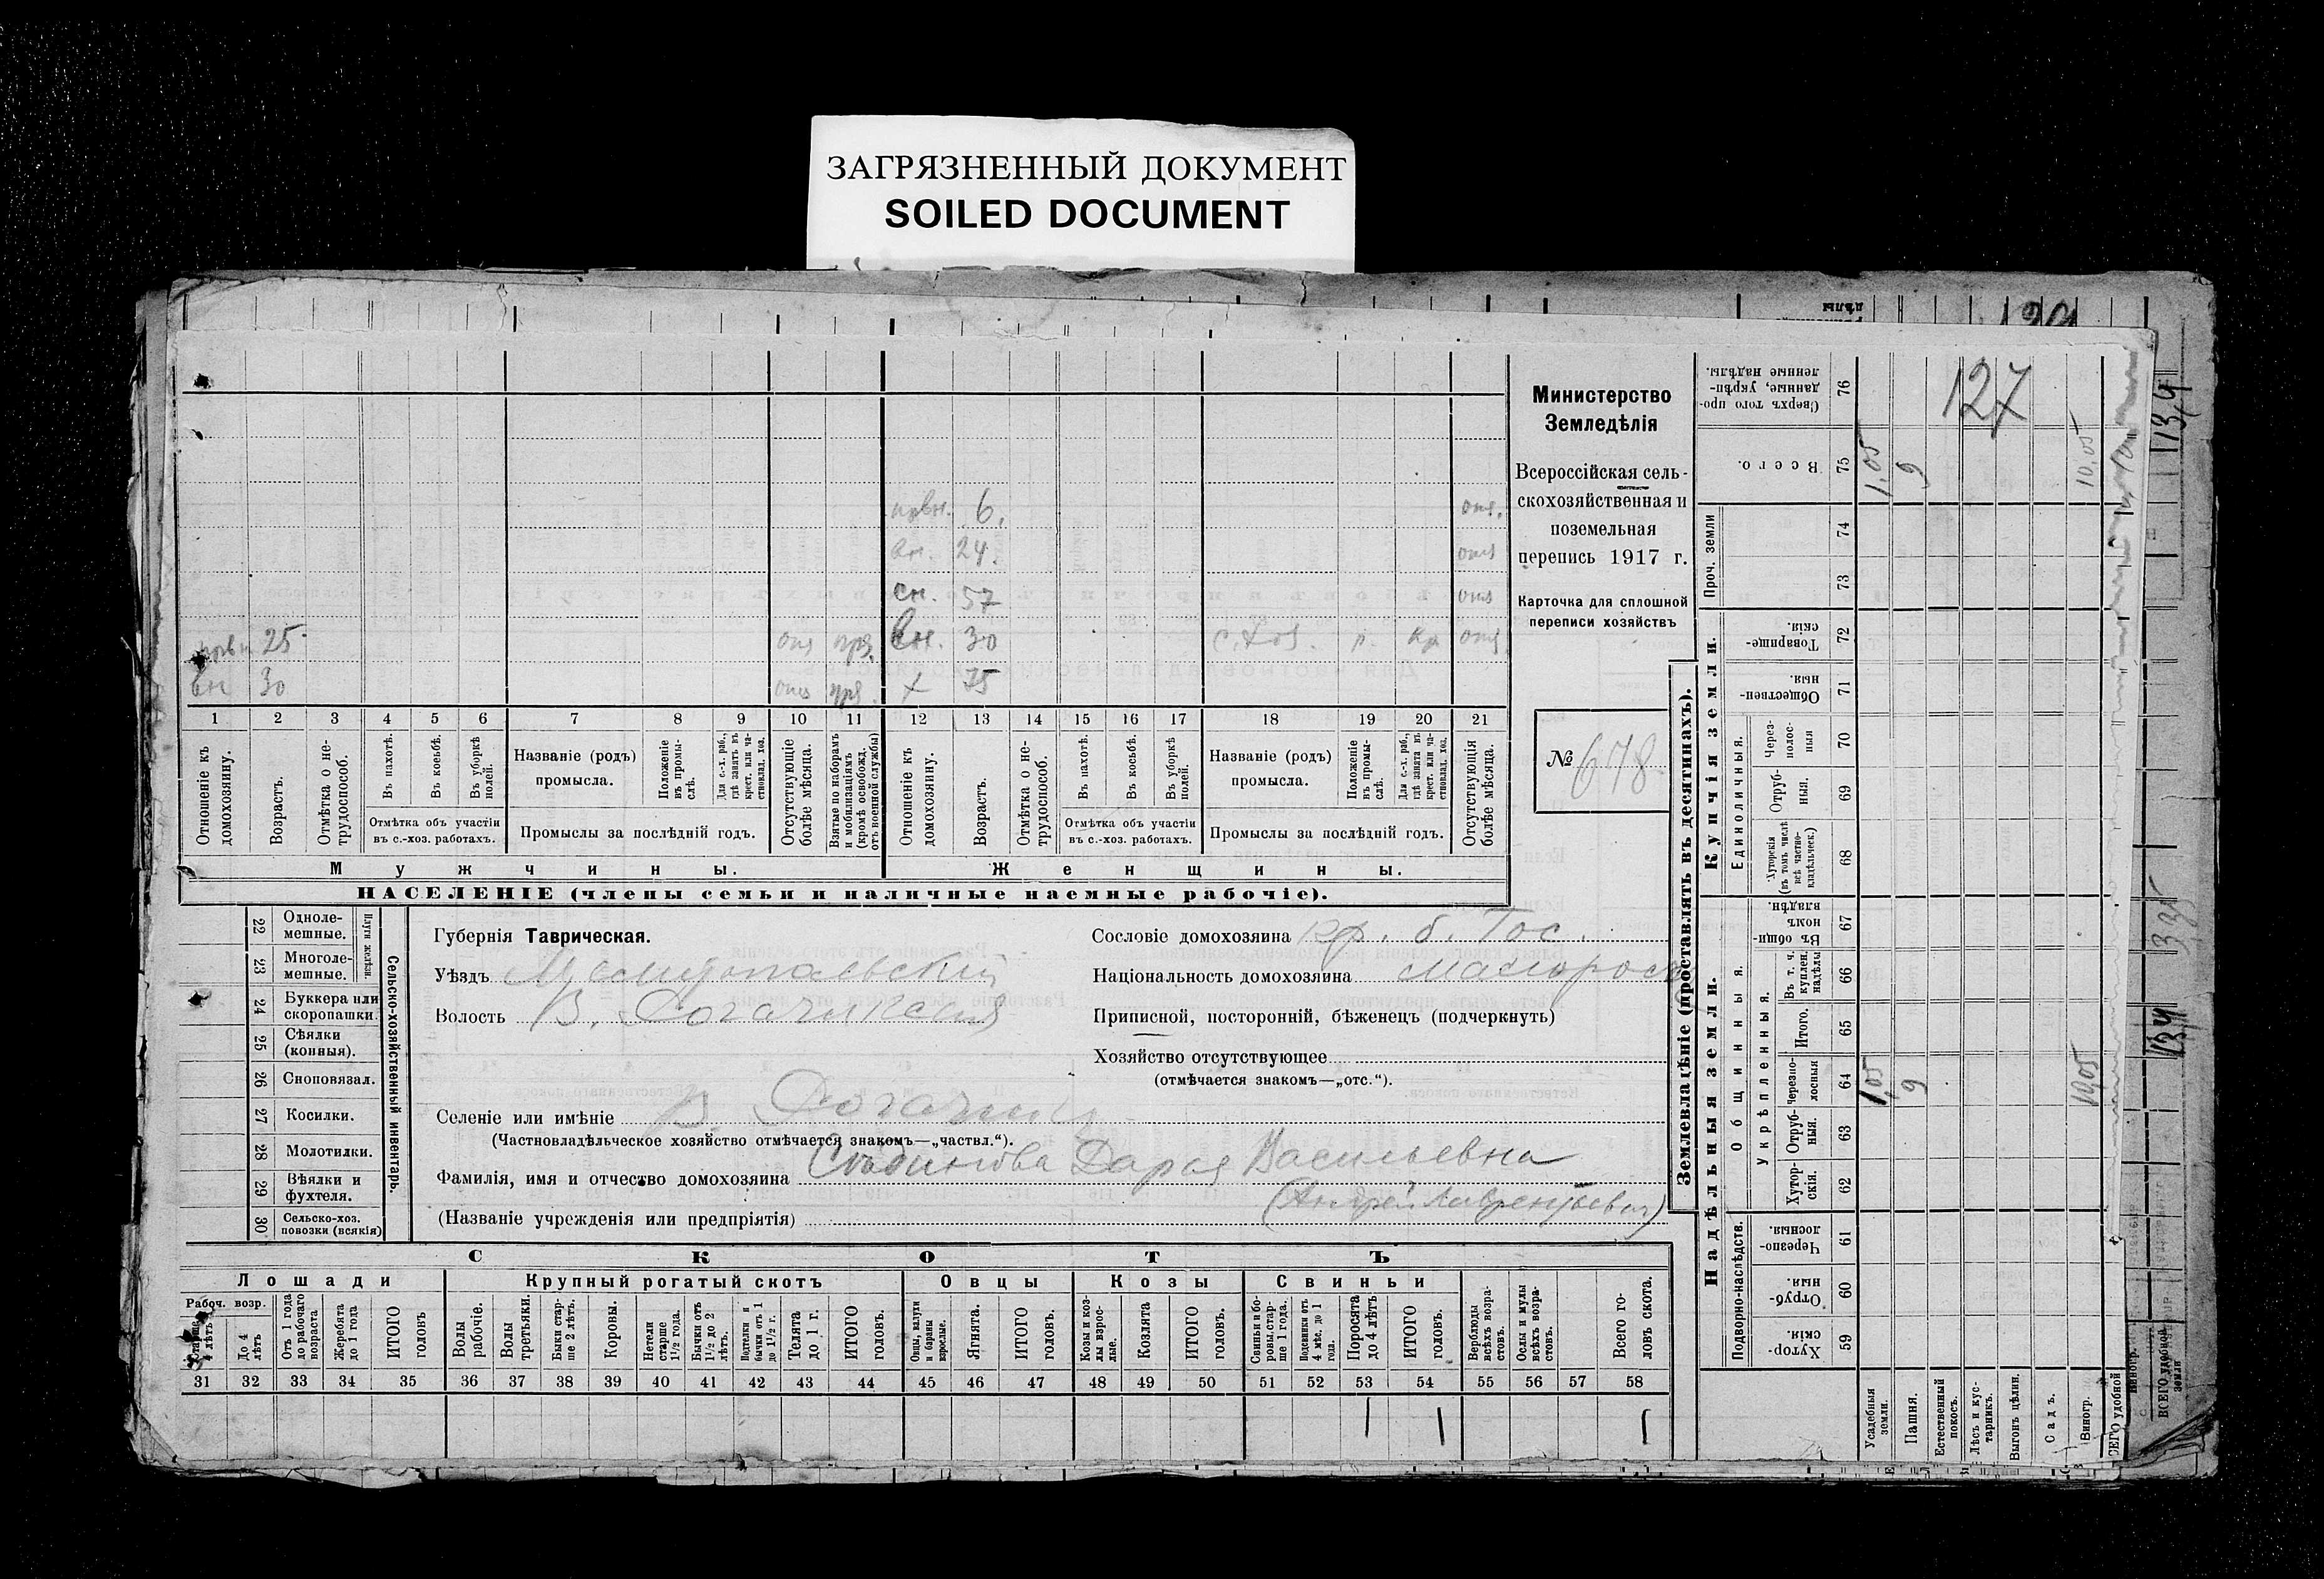 ЗАГРЯЗНЕННЫЙ ДОКУМЕНТ
SOILED DOCUMENT
Министерство
Земледѣлія
Всероссійская сель-
скохозяйственная и
поземельная
перепись 1917 г.
Карточка для сплошной
переписи хозяйствъ
№ 678
127
6.
24.
сн. 57
25 вн. 30
вн 30 + 75
1 2 3 4 5 6 7 8 9 10 11 12 13 14 15 16 17 18 19 20 21
Отношеніе къ домохозяину.
Возрастъ.
Отмѣтка о не-трудоспособ.
Въ пахотѣ.
Въ косьбѣ.
Въ уборкѣ полей.
Отмѣтка объ участіи въ с.-хоз. работахъ.
Названіе (родъ) промысла.
Положеніе въ промы-слѣ.
Для с.-х. раб., гдѣ занятъ въ крест. или ча-стновлад. хоз.
Промыслы за послѣдній годъ.
Отсутствующіе болѣе мѣсяца.
Взятые по наборамъ и мобилизаціямъ (кромѣ освобожд. отъ военной службы)
Отношеніе къ домохозяину.
Возрастъ.
Отмѣтка о не-трудоспособ.
Въ пахотѣ.
Въ косьбѣ.
Въ уборкѣ полей.
Отмѣтка объ участіи въ с.-хоз. работахъ.
Названіе (родъ) промысла.
Положеніе въ промы-слѣ.
Для с.-х. раб., гдѣ занята въ крест. или ча-стновлад. хоз.
Промыслы за послѣдній годъ.
Отсутствующія болѣе мѣсяца.
Мужчины. Женщины.
НАСЕЛЕНІЕ (члены семьи и наличные наемные рабочіе).
22 Одноле-мешные.
23 Многоле-мешные.
Плуги желѣзн.
24 Буккера или скоропашки.
25 Сѣялки (конныя).
26 Сноповязал.
27 Косилки.
28 Молотилки.
29 Вѣялки и фухтеля.
30 Сельско-хоз. повозки (всякія)
Сельско-хозяйственный инвентарь.
Губернія Таврическая.
Уѣздъ Мелитопольскій
Волость В. Рогачикская
Селеніе или имѣніе В. Рогачикъ
(Частновладѣльческое хозяйство отмѣчается знакомъ—„частвл.“).
Фамилія, имя и отчество домохозяина Дарья Васильевна
(Андрей Лаврентьевич)
(Названіе учрежденія или предпріятія)
Сословіе домохозяина кр. б. Гос.
Національность домохозяина малорос
Приписной, посторонній, бѣженецъ (подчеркнуть)
Хозяйство отсутствующее
(отмѣчается знакомъ—„отс.“).
СКОТЪ
Лошади Крупный рогатый скотъ Овцы Козы Свиньи
Рабоч. возр.
Старше 4 лѣтъ
До 4 лѣтъ
Отъ 1 года до рабочаго возраста
Жеребята до 1 года
ИТОГО головъ
Волы рабочіе.
Волы третьяки.
Быки стар-ше 2 лѣтъ.
Коровы.
Нетели старше 1½ года.
Бычки отъ 1½ до 2 лѣтъ.
Подтелки и бычки отъ 1 до 1½ г.
Телята до 1 г.
ИТОГО головъ.
Овцы, валухи и бараны взрослые.
Ягнята.
ИТОГО головъ.
Козы и коз-лы взрос-лые.
Козлята
ИТОГО головъ.
Свиньи и бо-ровы, стар-ше 1 года.
Подсвинки отъ 4 мѣс. до 1 года.
Поросята до 4 лѣтъ
ИТОГО головъ.
Верблюды всѣхъ возра-стовъ.
Ослы и мулы всѣхъ возра-стовъ.
Всего го-ловъ скота.
31 32 33 34 35 36 37 38 39 40 41 42 43 44 45 46 47 48 49 50 51 52 53 54 55 56 57 58
1 1 1
Землевладѣніе (проставлять въ десятинахъ).
Сверхъ того про-данные, укрѣп-ленные надѣлы. 76
Всего. 75 1,05 9 10,05
Проч. земли
74
73
Купчія земли.
Товарище-скія. 72
Обществен-ныя. 71
Единоличныя.
Через-полос-ныя 70
Отруб-ныя. 69
Хуторскія (въ томъ числѣ всѣ частно-владѣльческ.) 68
Надѣльныя земли.
Общинныя.
Въ общи-номъ владѣн. 67
Укрѣпленныя.
Въ т. ч. куплен. надѣлы 66
Итого. 65
Черезпо-лосныя 64 1,05 9 10,05
Отруб-ныя. 63
Хутор-скія. 62
Подворно-наслѣдств.
Черезпо-лосныя. 61
Отруб-ныя. 60
Хутор-скія. 59
Усадебныя земли.
Пашня.
Естественный покосъ.
Лѣсъ и кус-тарникъ.
Выгонъ цѣлин.
Садъ.
Виногр.
ВСЕГО удобной земли
13,4